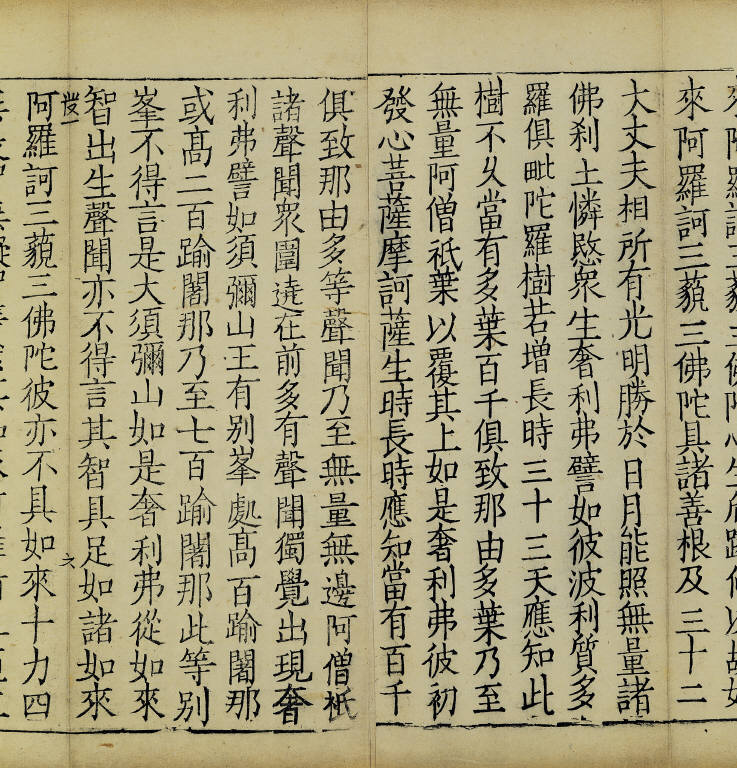 來阿羅訶三藐三佛陀心生
來阿羅訶三藐三佛陀具諸善根及三十二
大丈夫相所有光明勝於日月能照無量諸
佛刹土憐愍衆生奢利弗譬如彼波利質多
羅俱毗陀羅樹若增長時三十三天應知此
樹不久當有多葉百千俱致那由多葉乃至
無量阿僧祇葉以覆其上如是奢利弗彼初
發心菩薩摩訶薩生時長時應知當有百千
俱致那由多等聲聞乃至無量無邊阿僧祇
諸聲聞衆圍遶在前多有聲聞獨覺出現奢
利弗譬如須彌山王有別峯處高百踰闍那
或高二百踰闍那乃至七百踰闍那此等別
峯不得言是大須彌山如是奢利弗從如來
智出生聲聞亦不得言其智具足如諸如來
六
阿羅訶三藐三佛陀彼亦不具如來十力四